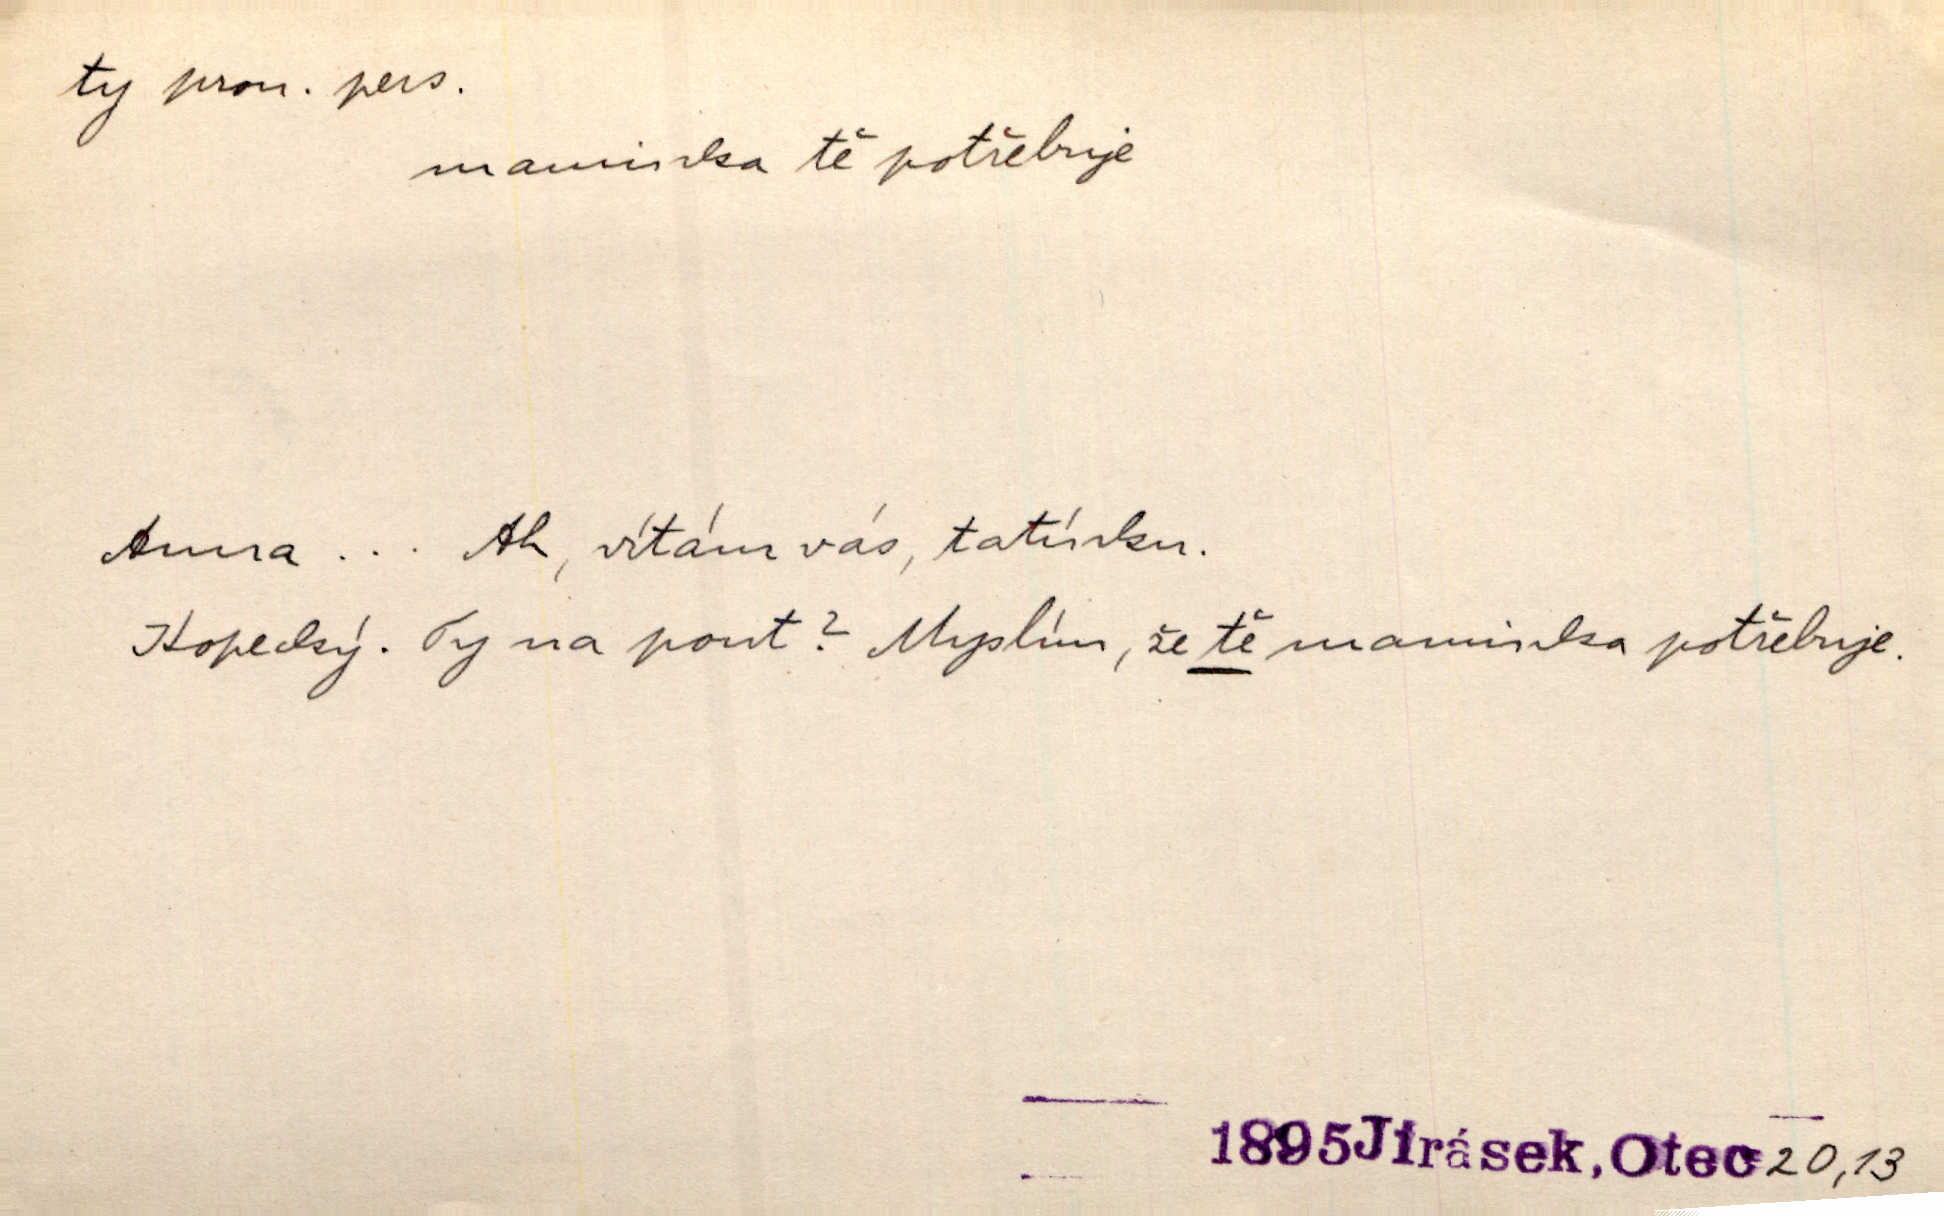 ty pron. pers.
maminka tě potřebuje
Anna ... Ah, vítám vás, tatínku.
Kopecký. Ty na pout? Myslím, že tě maminka potřebuje.
1895 Jirásek, Otec 20,13